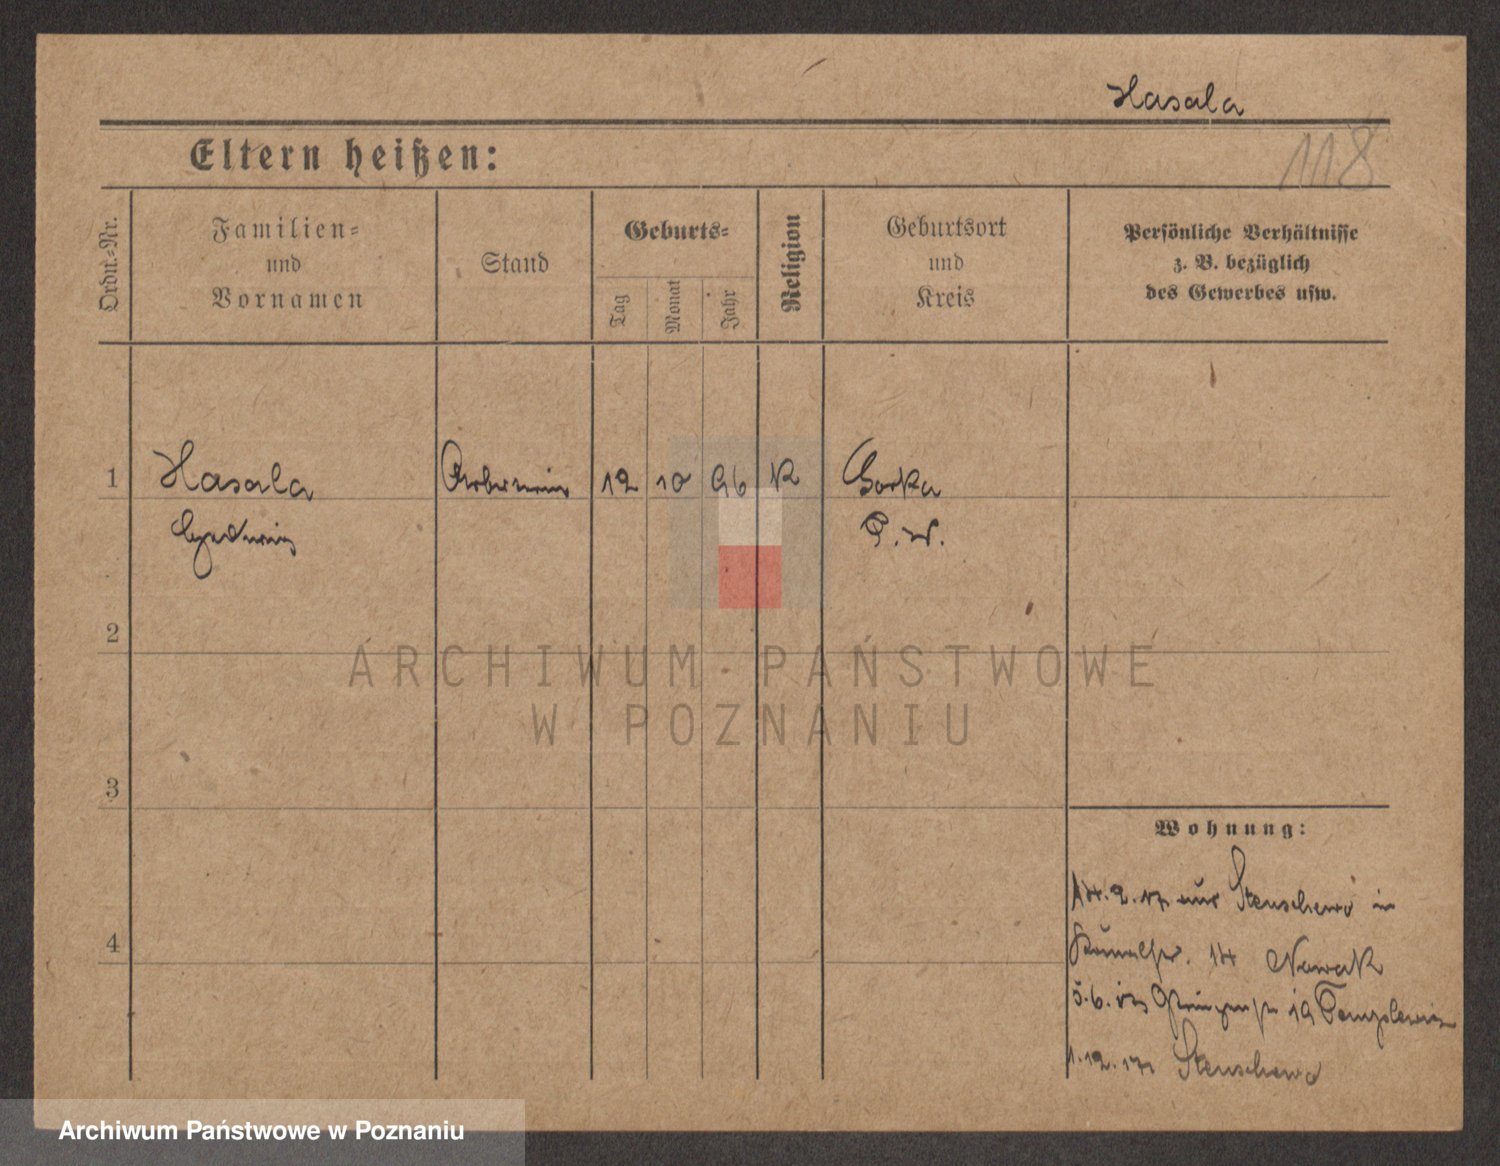 Hasala
118
Eltern heißen:
Ordn.-Nr.
Familien-
und
Vornamen
Stand
Geburts-
Tag
Monat
Jahr
Religion
Geburtsort
und
Kreis
Persönliche Verhältnisse
z. B. bezüglich
des Gewerbes usw.
1 Hasala 12 10 96 K Gorka
Hedwig P. W.
2
3
4
ARCHIWUM PAŃSTWOWE
W POZNANIU
Wohnung:
14. 2. 17 aus Stenschewo in
14 Nowak
5. 6. 19
1. 12. 17 Stenschewo
Archiwum Państwowe w Poznaniu